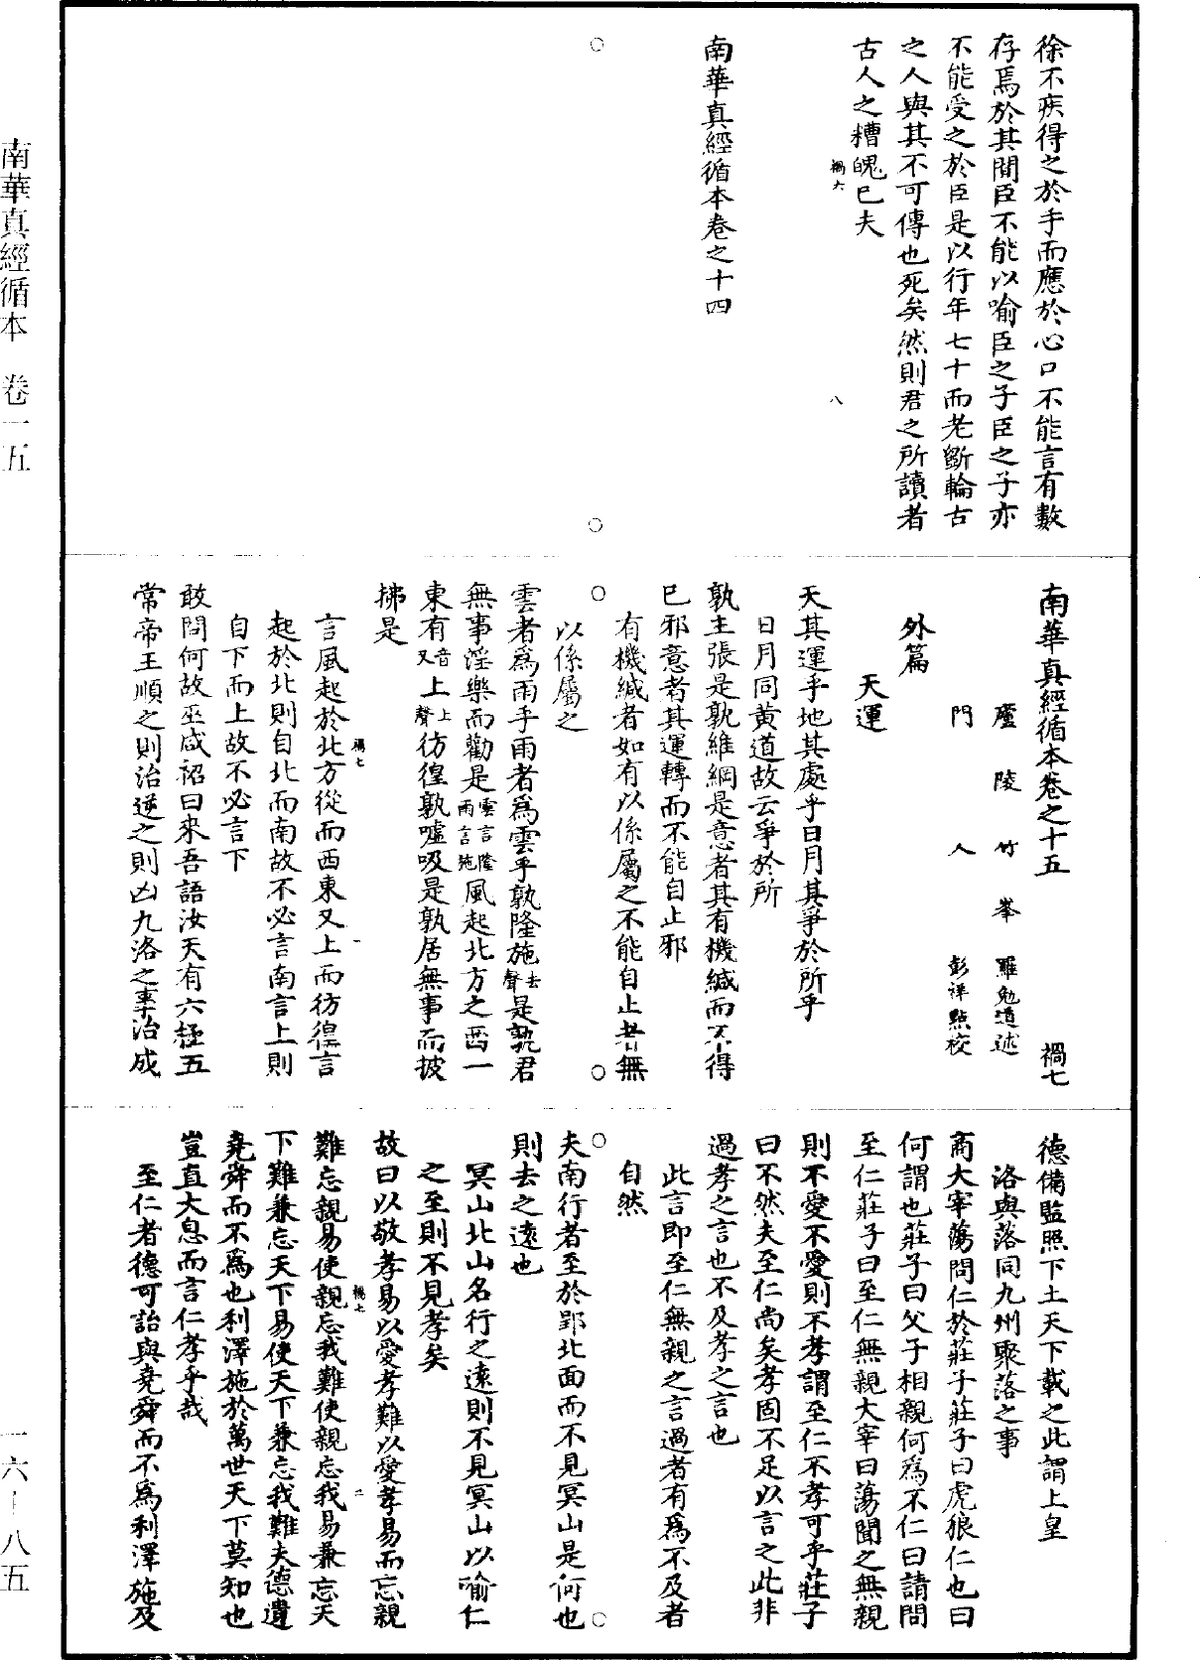 徐不疾得之於手而應於心口不能言有數
存焉於其間臣不能以喻臣之子臣之子亦
不能受之於臣是以行年七十而老斲輪古
之人與其不可傳也死矣然則君之所讀者
古人之糟魄已夫
禍六
八
南華真經循本卷之十四
南華真經循本卷之十五
禍七
廬陵竹峯羅勉道述
門人彭祥點校
外篇
天運
天其運乎地其處乎日月其爭於所乎
日月同黄道故云爭於所
孰主張是孰維綱是意者其有機緘而不得
已邪意者其運轉而不能自止邪
有機緘者如有以係屬之不能自止者無
以係屬之
雲者爲雨乎雨者爲雲乎孰隆施去聲是孰居
無事淫樂而勸是雲言隆雨言施風起北方之西一
東有音又上上聲彷徨孰噓吸是孰居無事而披
拂是
禍七
一
言風起於北方從而西東又上而彷徨言
起於北則自北而南故不必言南言上則
自下而上故不必言下
敢問何故巫咸祒曰來吾語汝天有六極五
常帝王順之則治逆之則凶九洛之事治成
德備監照下土天下載之此謂上皇
洛與落同九州聚落之事
商大宰蕩問仁於莊子莊子曰虎狼仁也曰
何謂也莊子曰父子相親何爲不仁曰請問
至仁莊子曰至仁無親大宰曰蕩聞之無親
則不愛不愛則不孝謂至仁不孝可乎莊子
曰不然夫至仁尚矣孝固不足以言之此非
過孝之言也不及孝之言也
此言即至仁無親之言過者有爲不及者
自然
夫南行者至於郢北面而不見冥山是何也
則去之遠也
冥山北山名行之遠則不見冥山以喻仁
之至則不見孝矣
故曰以敬孝易以愛孝難以愛孝易而忘親
禍七
二
難忘親易使親忘我難使親忘我易兼忘天
下難兼忘天下易使天下兼忘我難夫德遺
堯舜而不爲也利澤施於萬世天下莫知也
豈直大息而言仁孝乎哉
至仁者德可詒與堯舜而不爲利澤施及
南華真經循本 卷一五
一六—八五